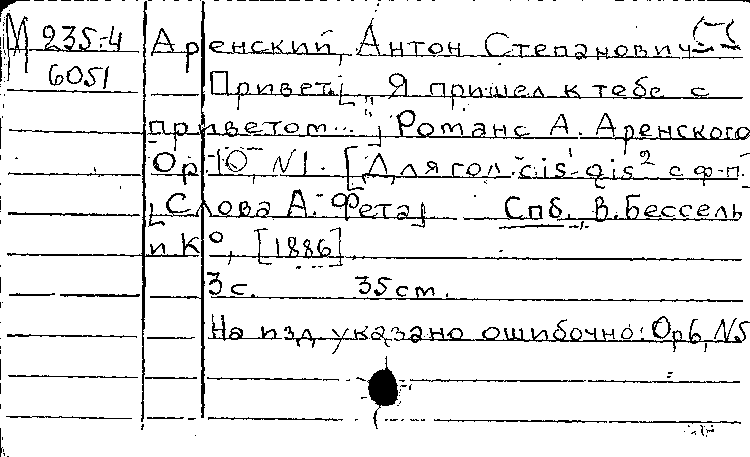 М 235-4
6051
Аренский, Антон Степанович
Привет. „Я пришел к тебе с
приветом..." Романс А. Аренского
Op. 10, N1. [Для гол. cis¹-gis² с ф-п.
Слова А. Фета] Спб., В. Бессель
и К°, [1886].
3 с. 35 cm.
На изд. указано ошибочно: Op 6, N5